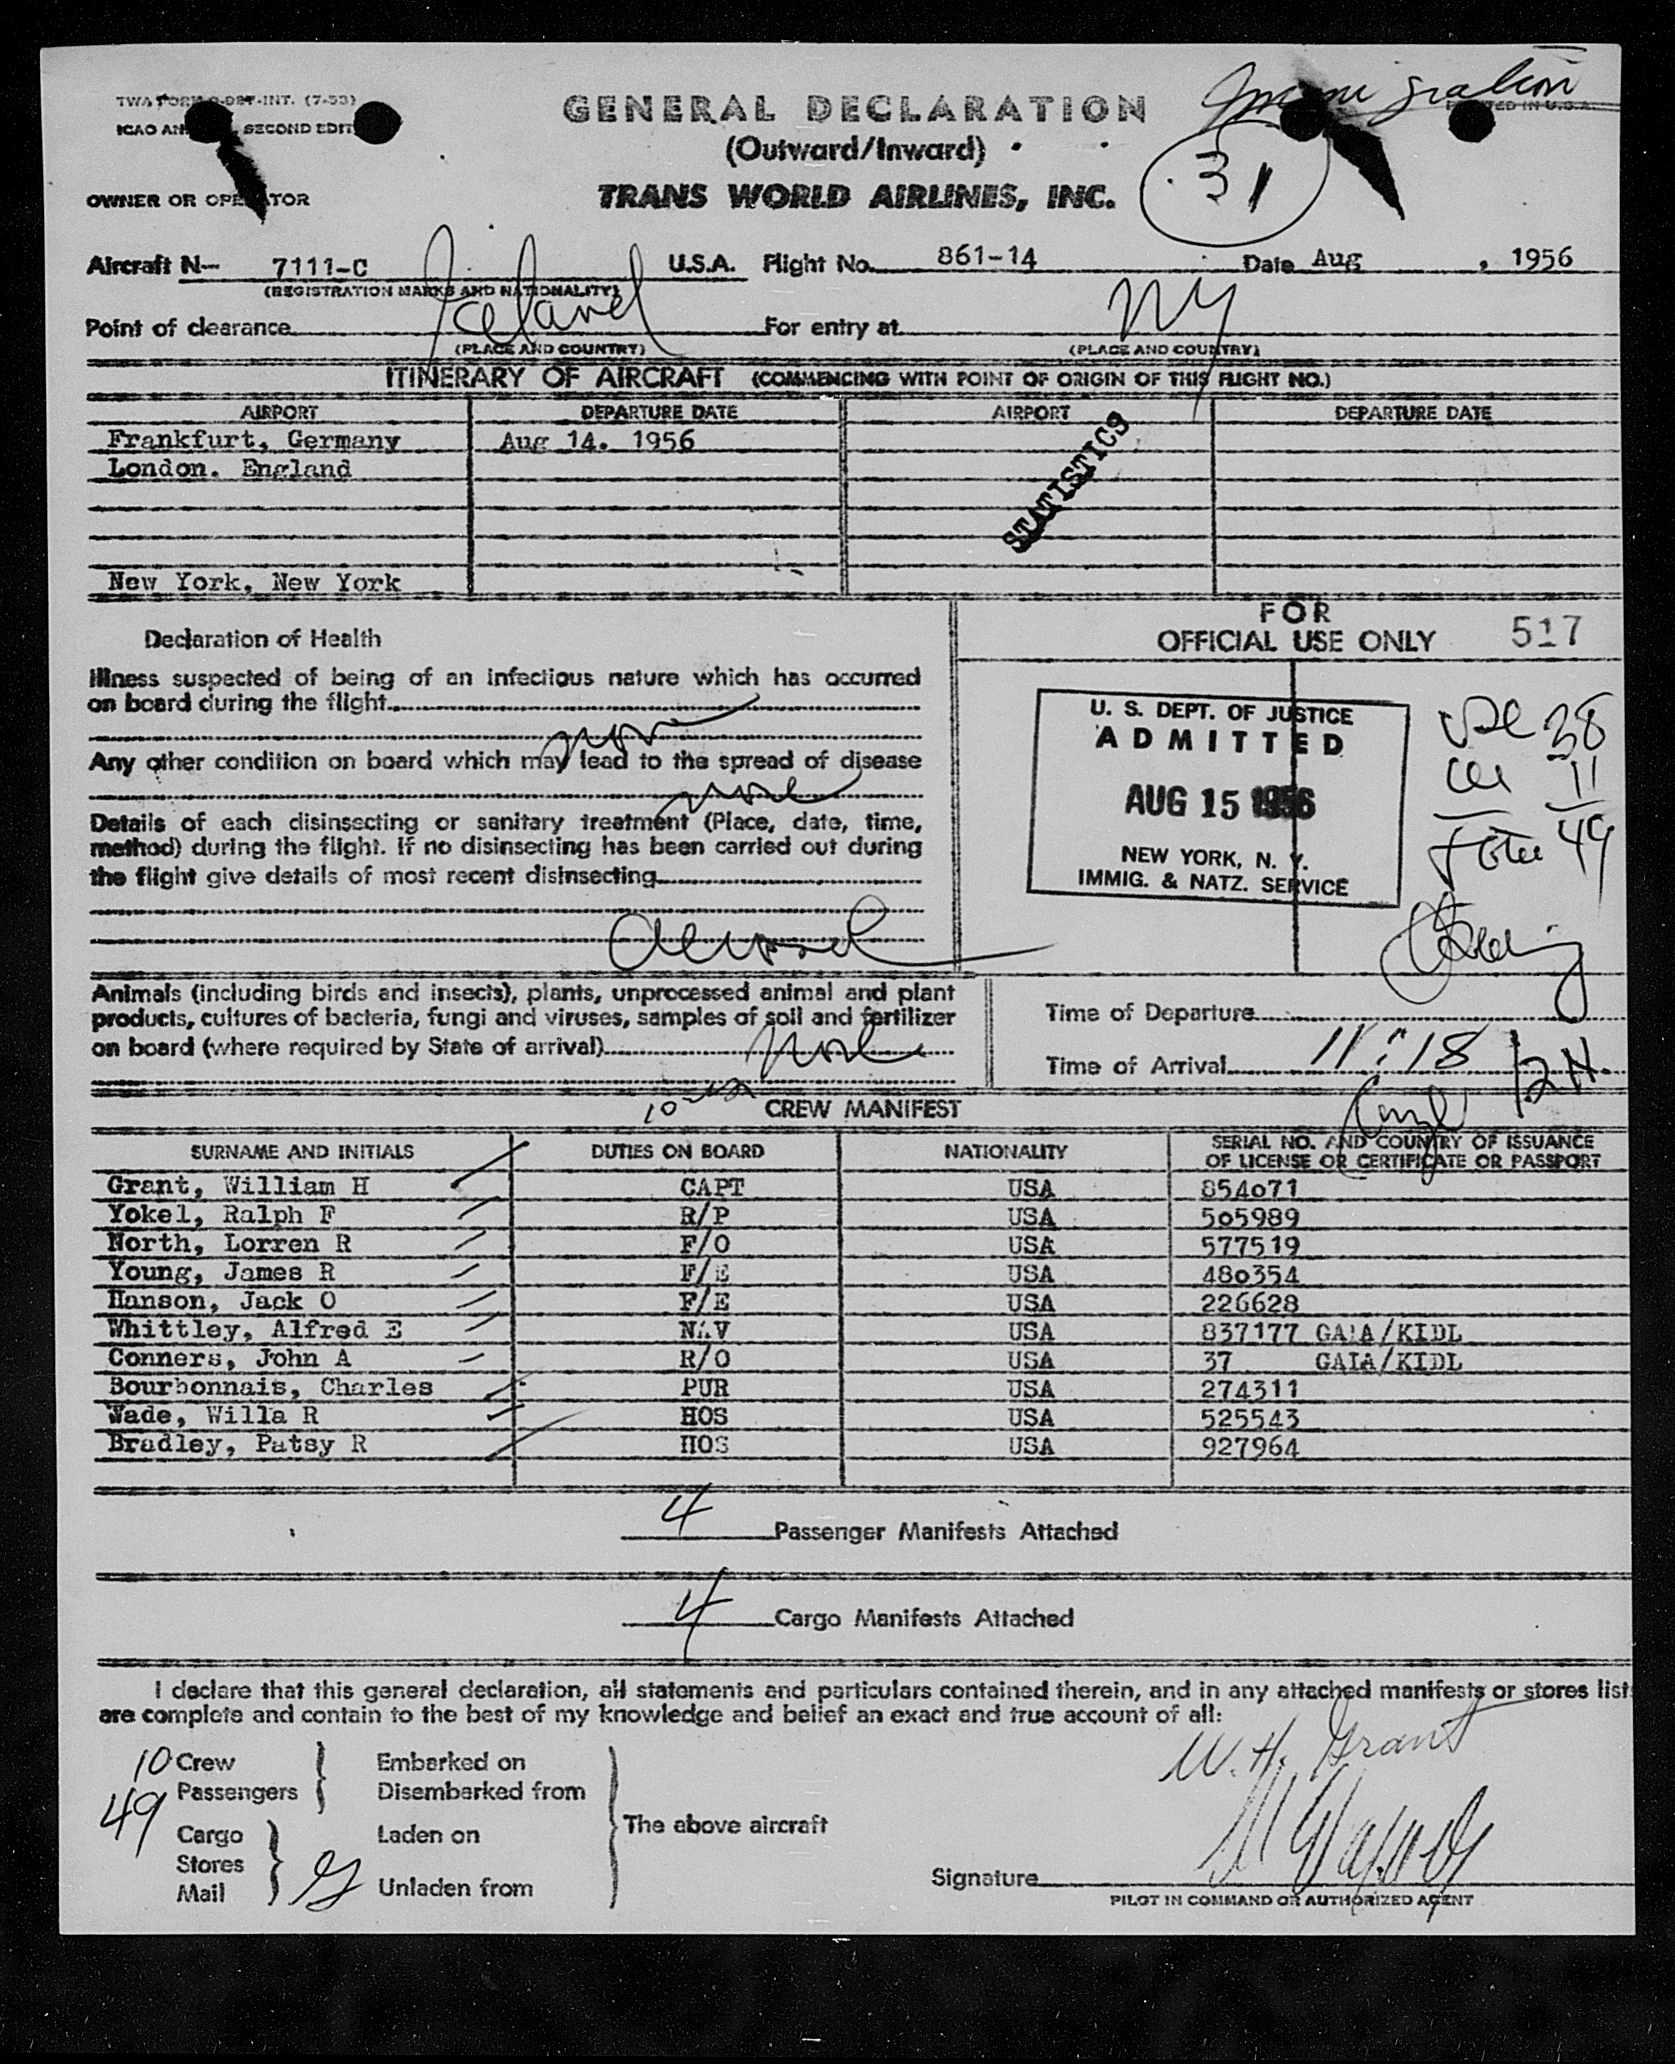 Immigration
GENERAL DECLARATION
(Outward/Inward)
31
OWNER OR OPERATOR
TRANS WORLD AIRLINES, INC.
Aircraft N— 7111-C U.S.A. Flight No. 861-14 Date Aug , 1956
(REGISTRATION MARKS AND NATIONALITY)
Point of clearance Iceland For entry at NY
(PLACE AND COUNTRY) (PLACE AND COUNTRY)
ITINERARY OF AIRCRAFT (COMMENCING WITH POINT OF ORIGIN OF THIS FLIGHT NO.)
AIRPORT DEPARTURE DATE AIRPORT DEPARTURE DATE
Frankfurt, Germany Aug 14. 1956
London. England
STATISTICS
New York, New York
FOR
OFFICIAL USE ONLY 517
Declaration of Health
Illness suspected of being of an infectious nature which has occurred
on board during the flight
Any other condition on board which may lead to the spread of disease
none
Details of each disinsecting or sanitary treatment (Place, date, time,
method) during the flight. If no disinsecting has been carried out during
the flight give details of most recent disinsecting
U. S. DEPT. OF JUSTICE
ADMITTED
AUG 15 1956
NEW YORK, N. Y.
IMMIG. & NATZ. SERVICE
38
11
Total 49
Animals (including birds and insects), plants, unprocessed animal and plant
products, cultures of bacteria, fungi and viruses, samples of soil and fertilizer
on board (where required by State of arrival) none
Time of Departure
Time of Arrival 11:18
CREW MANIFEST
SURNAME AND INITIALS DUTIES ON BOARD NATIONALITY SERIAL NO. AND COUNTRY OF ISSUANCE
OF LICENSE OR CERTIFICATE OR PASSPORT
Grant, William H CAPT USA 854071
Yokel, Ralph F R/P USA 505989
North, Lorren R F/O USA 577519
Young, James R F/E USA 480354
Hanson, Jack O F/E USA 226628
Whittley, Alfred E NAV USA 837177 GAIA/KIDL
Conners, John A R/O USA 37 GAIA/KIDL
Bourbonnais, Charles PUR USA 274311
Wade, Willa R HOS USA 525543
Bradley, Patsy R HOS USA 927964
4 Passenger Manifests Attached
4 Cargo Manifests Attached
I declare that this general declaration, all statements and particulars contained therein, and in any attached manifests or stores list
are complete and contain to the best of my knowledge and belief an exact and true account of all:
W. H. Grant
10 Crew Embarked on
49 Passengers Disembarked from
The above aircraft
Cargo Laden on
Stores
Mail Unladen from
Signature
PILOT IN COMMAND OR AUTHORIZED AGENT